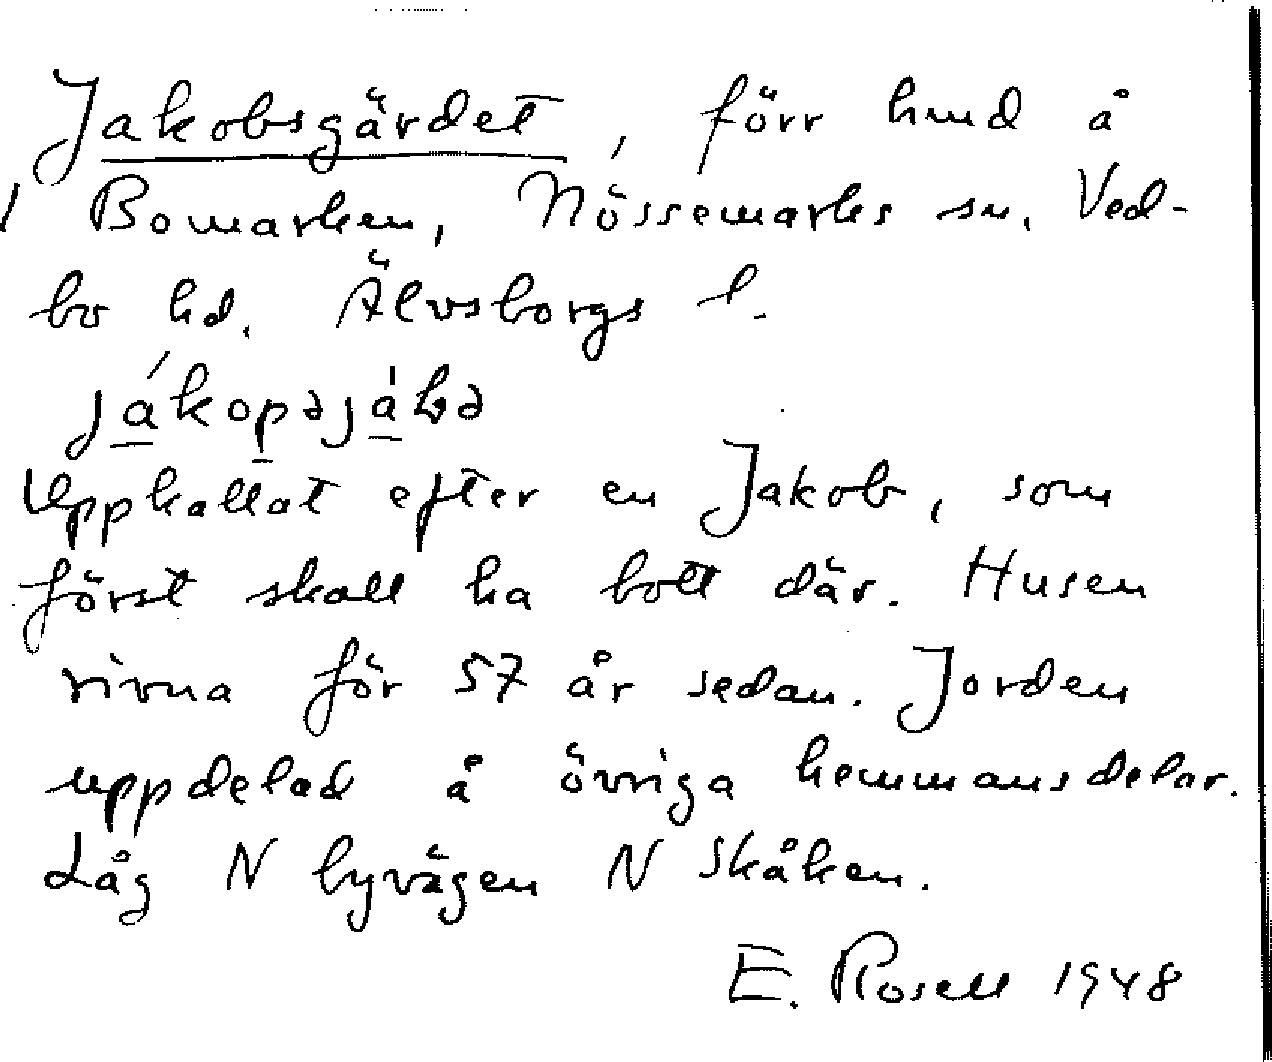 Jakobsgärdet, förr hmd å
Bomarken, Nössemarks sn, Ved-
bo hd. Älvsborgs l.
Uppkallat efter en Jakob, som
först skall ha bott där. Husen
rivna för 57 år sedan. Jorden
uppdelad å övriga hemmansdelar.
Låg N byvägen N Skåken.
E. Rosell 1948